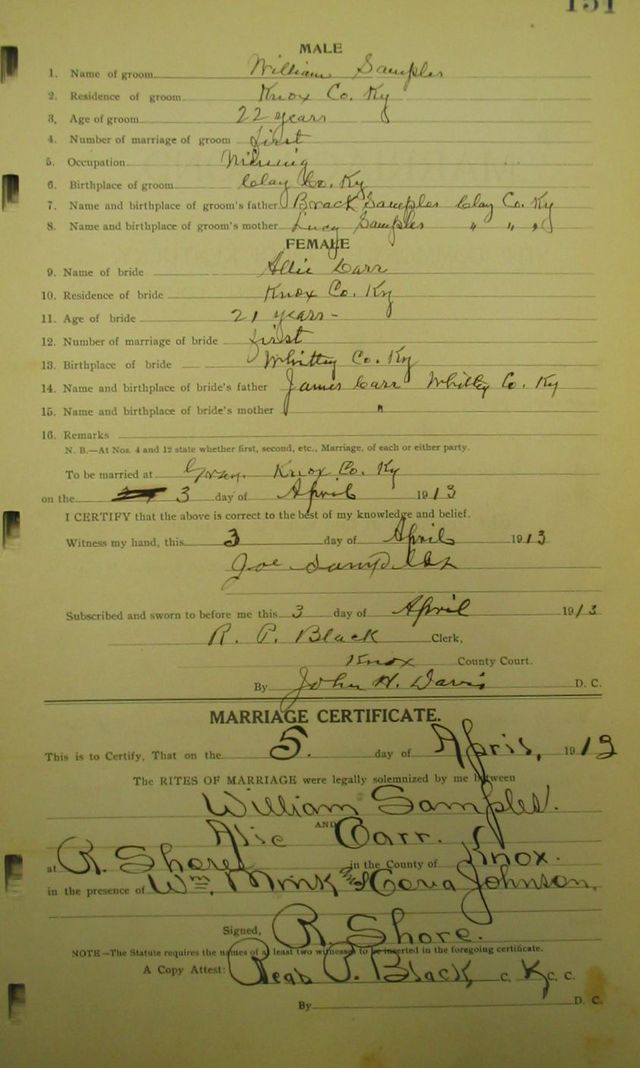 151
MALE
1. Name of groom William Samples
2. Residence of groom Knox Co. Ky
3. Age of groom 22 years
4. Number of marriage of groom first
5. Occupation Mining
6. Birthplace of groom Clay Co. Ky
7. Name and birthplace of groom's father Brack Samples Clay Co. Ky
8. Name and birthplace of groom's mother Lucy Samples " " "
FEMALE
9. Name of bride Allie Carr
10. Residence of bride Knox Co. Ky
11. Age of bride 21 years -
12. Number of marriage of bride first
13. Birthplace of bride Whitley Co. Ky
14. Name and birthplace of bride's father James Carr Whitley Co. Ky
15. Name and birthplace of bride's mother "
16. Remarks
N. B.—At Nos. 4 and 12 state whether first, second, etc., Marriage, of each or either party.
To be married at Gray. Knox Co. Ky
on the 3 day of April 1913
I CERTIFY that the above is correct to the best of my knowledge and belief.
Witness my hand, this 3 day of April 1913
Joe
Subscribed and sworn to before me this 3 day of April 1913
R. P. Black Clerk,
Knox County Court.
By John H. Davis D. C.
MARRIAGE CERTIFICATE.
This is to Certify, That on the 5. day of April, 1913
The RITES OF MARRIAGE were legally solemnized by me between
William Samples.
AND
Alie Carr.
at R. Shores in the County of Knox.
in the presence of Wm. Mink and Johnson,
Signed, R. Shore.
NOTE—The Statute requires the names of at least two witnesses to be inserted in the foregoing certificate.
A Copy Attest: Read P. Black C. K. C. C.
By D. C.